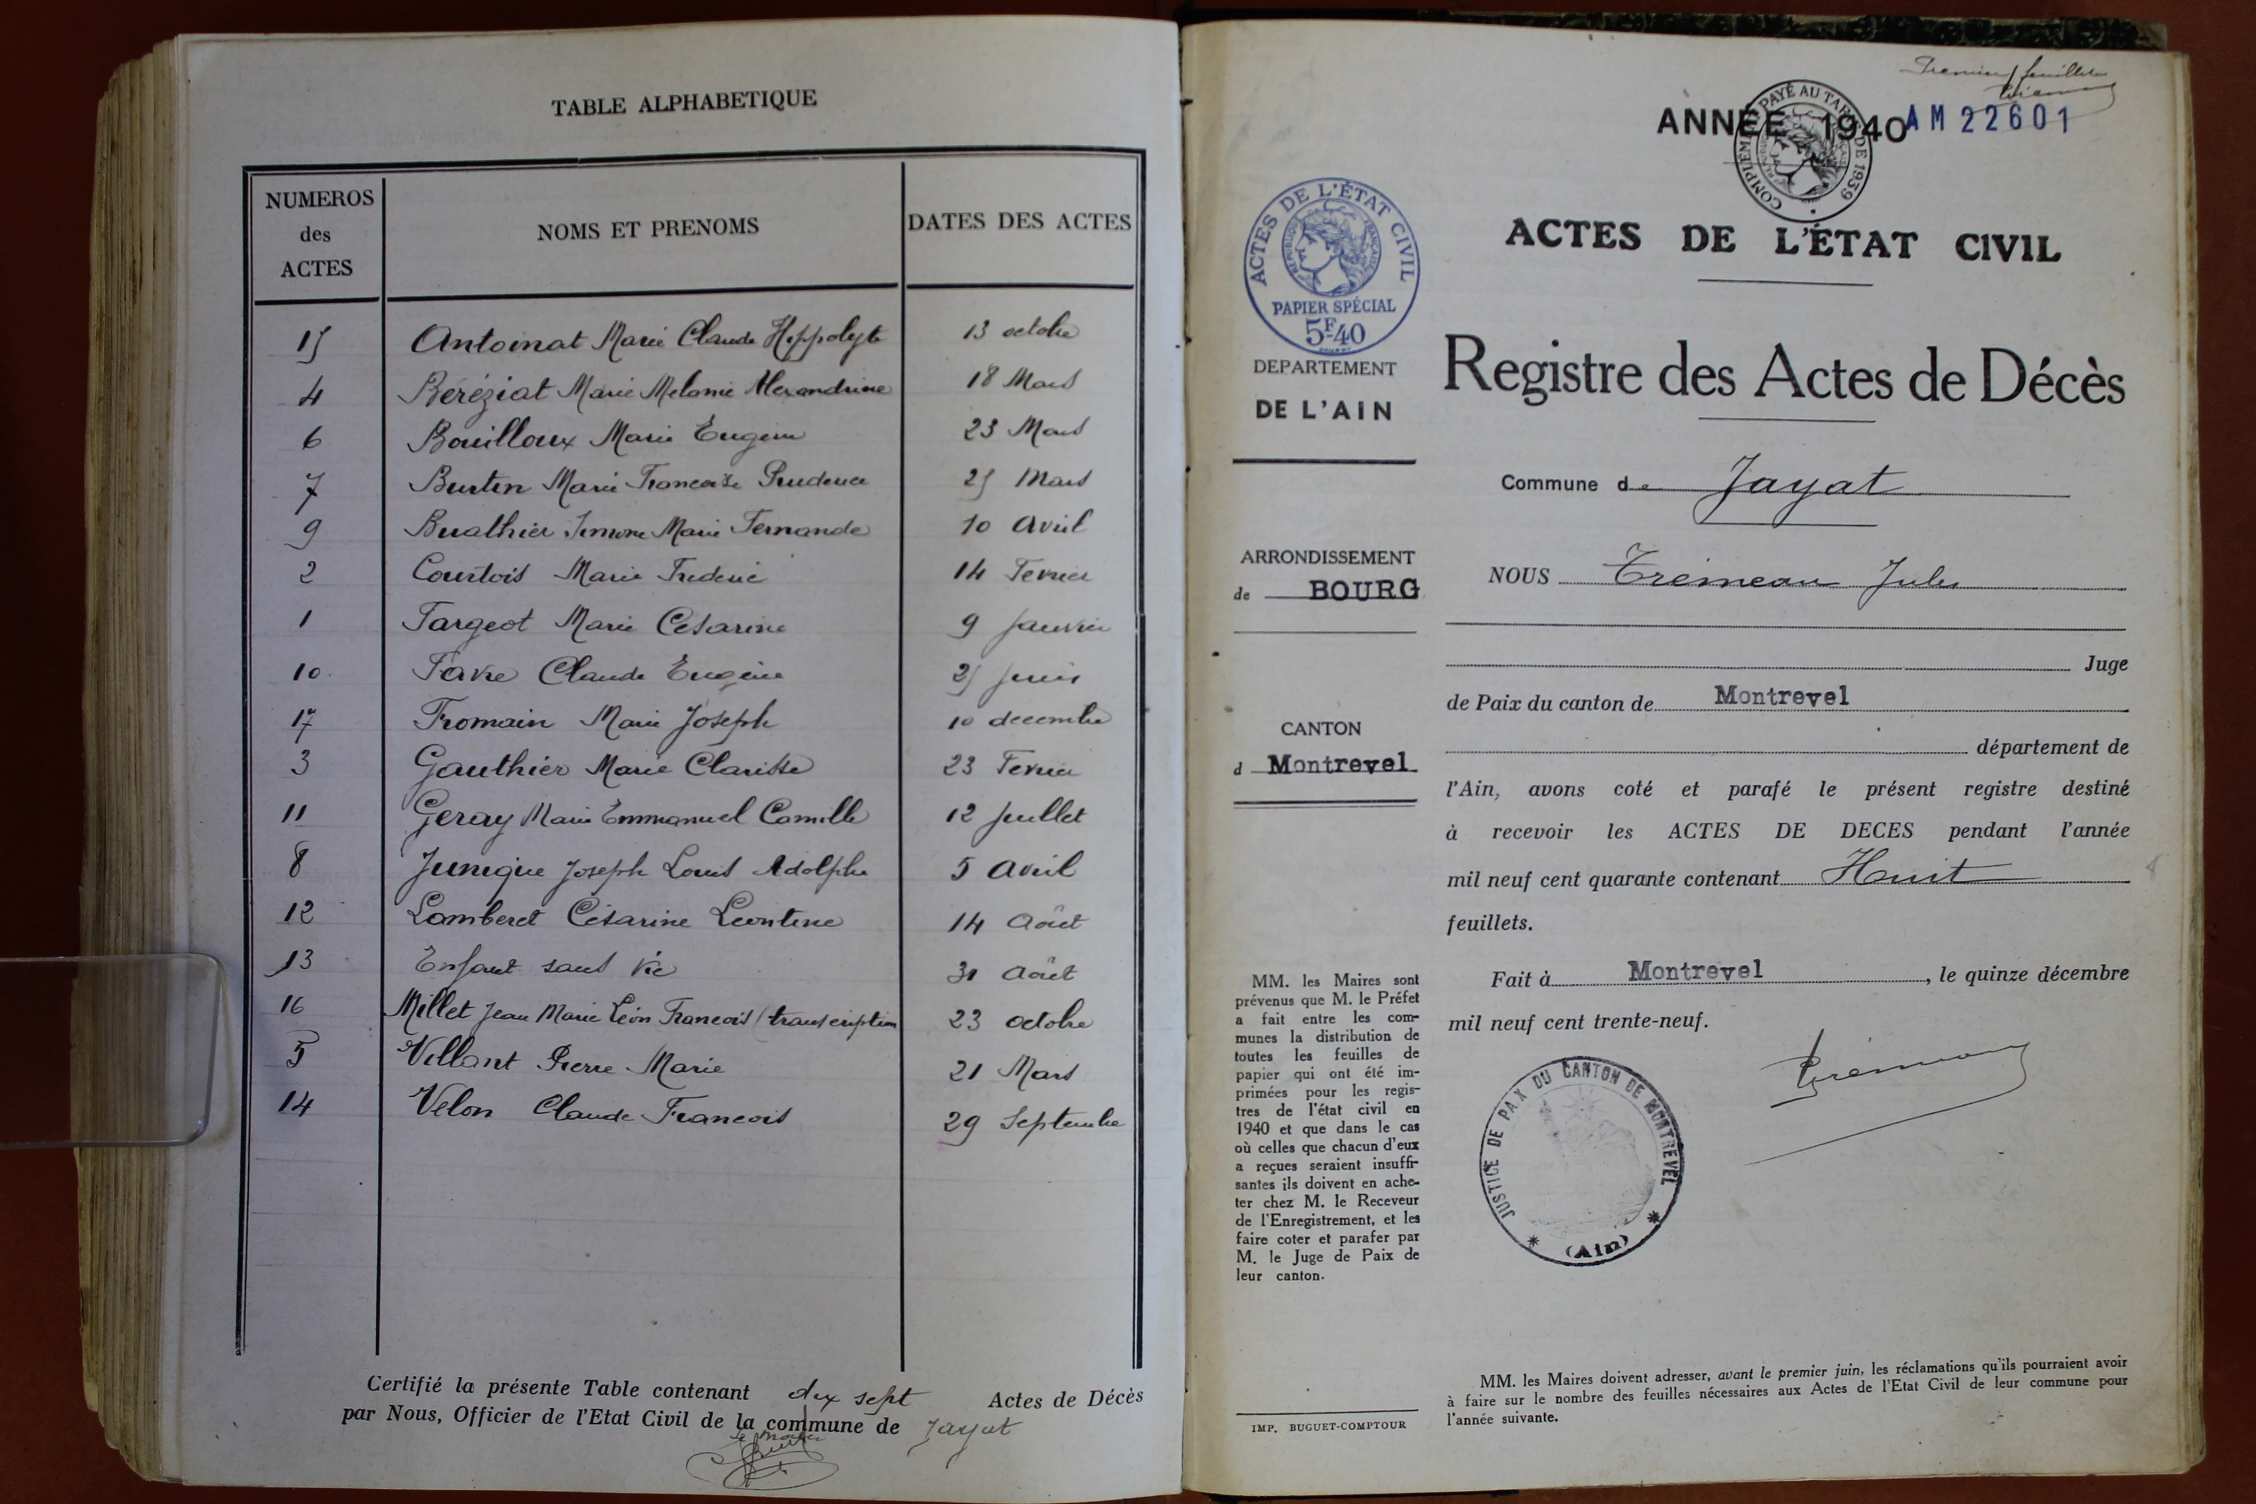 TABLE ALPHABETIQUE
NUMEROS
des
ACTES
NOMS ET PRENOMS
DATES DES ACTES
15 Antoinat Marie Claude Hippolyte 13 octobre
4 Béréziat Marie Melanie Alexandrine 18 Mars
6 Bouilloux Marie Eugène 23 Mars
7 Burtin Marie Francoise Prudence 25 Mars
9 Buathier Simone Marie Fernande 10 Avril
2 Courtois Marie Frederic 14 Fevrier
1 Fargeot Marie Césarine 9 Janvier
10 Favre Claude Eugène 25 Juin
17 Fromain Marie Joseph 10 decembre
3 Gauthier Marie Clarisse 23 Fevrier
11 Geray Marie Emmanuel Camille 12 Juillet
8 Junique Joseph Louis Adolphe 5 Avril
12 Lamberet Césarine Leontine 14 Août
13 Enfant sans vie 31 Août
16 Millet Jean Marie Léon Francois (transcription 23 octobre
5 Villant Pierre Marie 21 Mars
14 Velon Claude Francois 29 Septembre
Certifié la présente Table contenant dix sept Actes de Décès
par Nous, Officier de l'Etat Civil de la commune de Jayat
Le Maire
Premier feuillet
ANNÉE 1940 AM 22601
COMPLÉMENT PAYÉ AU TARIF DE 1939
ACTES DE L'ÉTAT CIVIL
RÉPUBLIQUE FRANÇAISE
PAPIER SPÉCIAL
5F40
DEPARTEMENT
DE L'AIN
ARRONDISSEMENT
de BOURG
CANTON
d Montrevel
MM. les Maires sont
prévenus que M. le Préfet
a fait entre les com-
munes la distribution de
toutes les feuilles de
papier qui ont été im-
primées pour les regis-
tres de l'état civil en
1940 et que dans le cas
où celles que chacun d'eux
a reçues seraient insuffi-
santes ils doivent en ache-
ter chez M. le Receveur
de l'Enregistrement, et les
faire coter et parafer par
M. le Juge de Paix de
leur canton.
IMP. BUGUET-COMPTOUR
ACTES DE L'ÉTAT CIVIL
Registre des Actes de Décès
Commune de Jayat
NOUS Trémeau Jules
Juge
de Paix du canton de Montrevel
département de
l'Ain, avons coté et parafé le présent registre destiné
à recevoir les ACTES DE DECES pendant l'année
mil neuf cent quarante contenant Huit
feuillets.
Fait à Montrevel, le quinze décembre
mil neuf cent trente-neuf.
Trémeau
JUSTICE DE PAIX DU CANTON DE MONTREVEL
* (Ain) *
MM. les Maires doivent adresser, avant le premier juin, les réclamations qu'ils pourraient avoir
à faire sur le nombre des feuilles nécessaires aux Actes de l'Etat Civil de leur commune pour
l'année suivante.